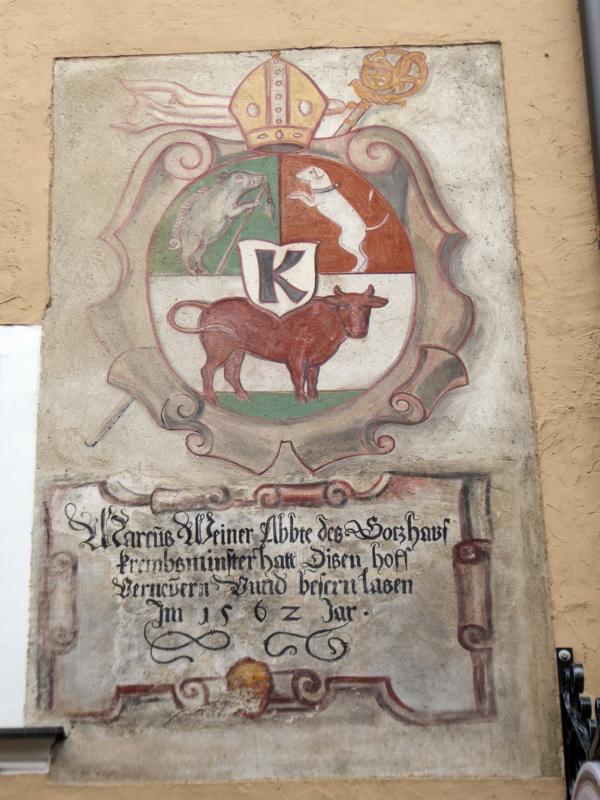 K
Marcus Weiner Abbte des Gotzhaus
Krembsminster hatt Disen hoff
Verneŭern Vnnd bessern lasen
Im 1562 Jar.